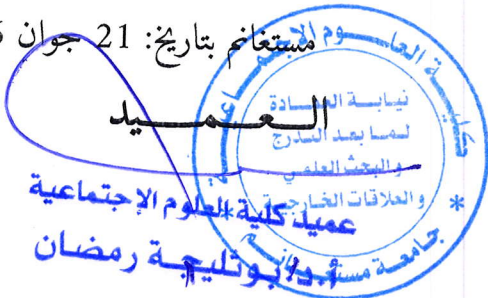 مستغانم بتاريخ: 21 جوان
العميد
كلية العلوم الاجتماعية
نيابة العمادة
لما بعد التدرج
والبحث العلمي
و العلاقات الخارجية
جامعة مستغانم
عميد كلية العلوم الإجتماعية
أ.د/بوثليجة رمضان